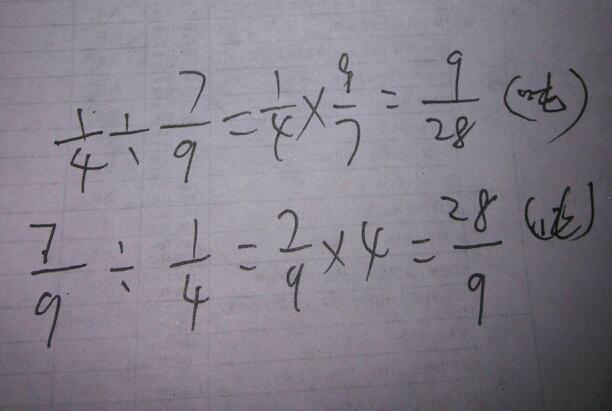 1/4 ÷ 7/9 = 1/4 × 9/7 = 9/28 (吨)
7/9 ÷ 1/4 = 7/9 × 4 = 28/9 (吨)